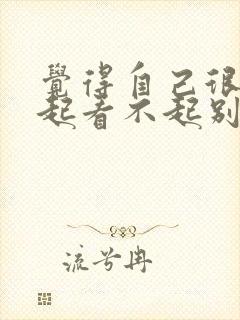 覺得自己很
起看不起别
流兮冉